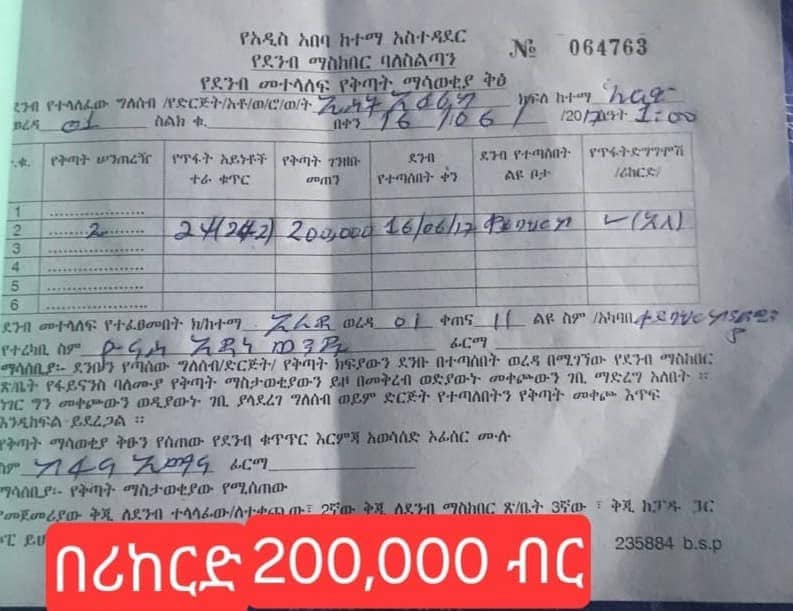 የአዲስ አበባ ከተማ አስተዳደር
የደንብ ማስከበር ባለስልጣን
№ 064763
የደንብ መተላለፍ የቅጣት ማሳወቂያ ቅፅ
ደንብ የተላለፈው ግለሰብ /የድርጅት/አቶ/ወ/ሮ/ወ/ት ክፍለ ከተማ
ወረዳ 01 ስልክ ቁ. በቀን 16/06/ /2017 ሰዓት 1:00
ተ.ቁ. የቅጣት ሠንጠረዥ የጥፋት አይነቶች ተራ ቁጥር የቅጣት ገንዘቡ መጠን ደንብ የተጣሰበት ቀን ደንብ የተጣሰበት ልዩ ቦታ የጥፋት ድግግሞሽ /ሪከርድ/
1 .....................
2 2 24(24.2) 200,000 16/06/17 ✓ (አለ)
3 .....................
4 .....................
5 .....................
6 .....................
ደንብ መተላለፍ የተፈፀመበት ክ/ከተማ አራዳ ወረዳ 01 ቀጠና 11 ልዩ ስም /አካባቢ
የተረካቢ ስም ፊርማ
ማሳሰቢያ፡- ደንቡን የጣሰው ግለሰብ/ድርጅት/ የቅጣት ክፍያውን ደንቡ በተጣሰበት ወረዳ በሚገኘው የደንብ ማስከበር
ጽ/ቤት የፋይናንስ ባለሙያ የቅጣት ማስታወቂያውን ይዞ በመቅረብ ወድያውኑ መቀጮውን ገቢ ማድረግ አለበት ።
ነገር ግን መቀጮውን ወዲያውኑ ገቢ ያላደረገ ግለሰብ ወይም ድርጅት የተጣለበትን የቅጣት መቀጮ እጥፍ
እንዲከፍል ይደረጋል ።
የቅጣት ማሳወቂያ ቅፁን የሰጠው የደንብ ቁጥጥር እርምጃ አወሳሰድ ኦፊሰር ሙሉ
ስም ፊርማ
ማሳሰቢያ፡- የቅጣት ማስታወቂያው የሚሰጠው
የመጀመሪያው ቅጂ ለደንብ ተላላፊው/ለተቀጪው፣ 2ኛው ቅጂ ለደንብ ማስከበር ጽ/ቤት 3ኛው ፣ ቅጂ ከፓዱ ጋር
235884 b.s.p
በሪከርድ 200,000 ብር